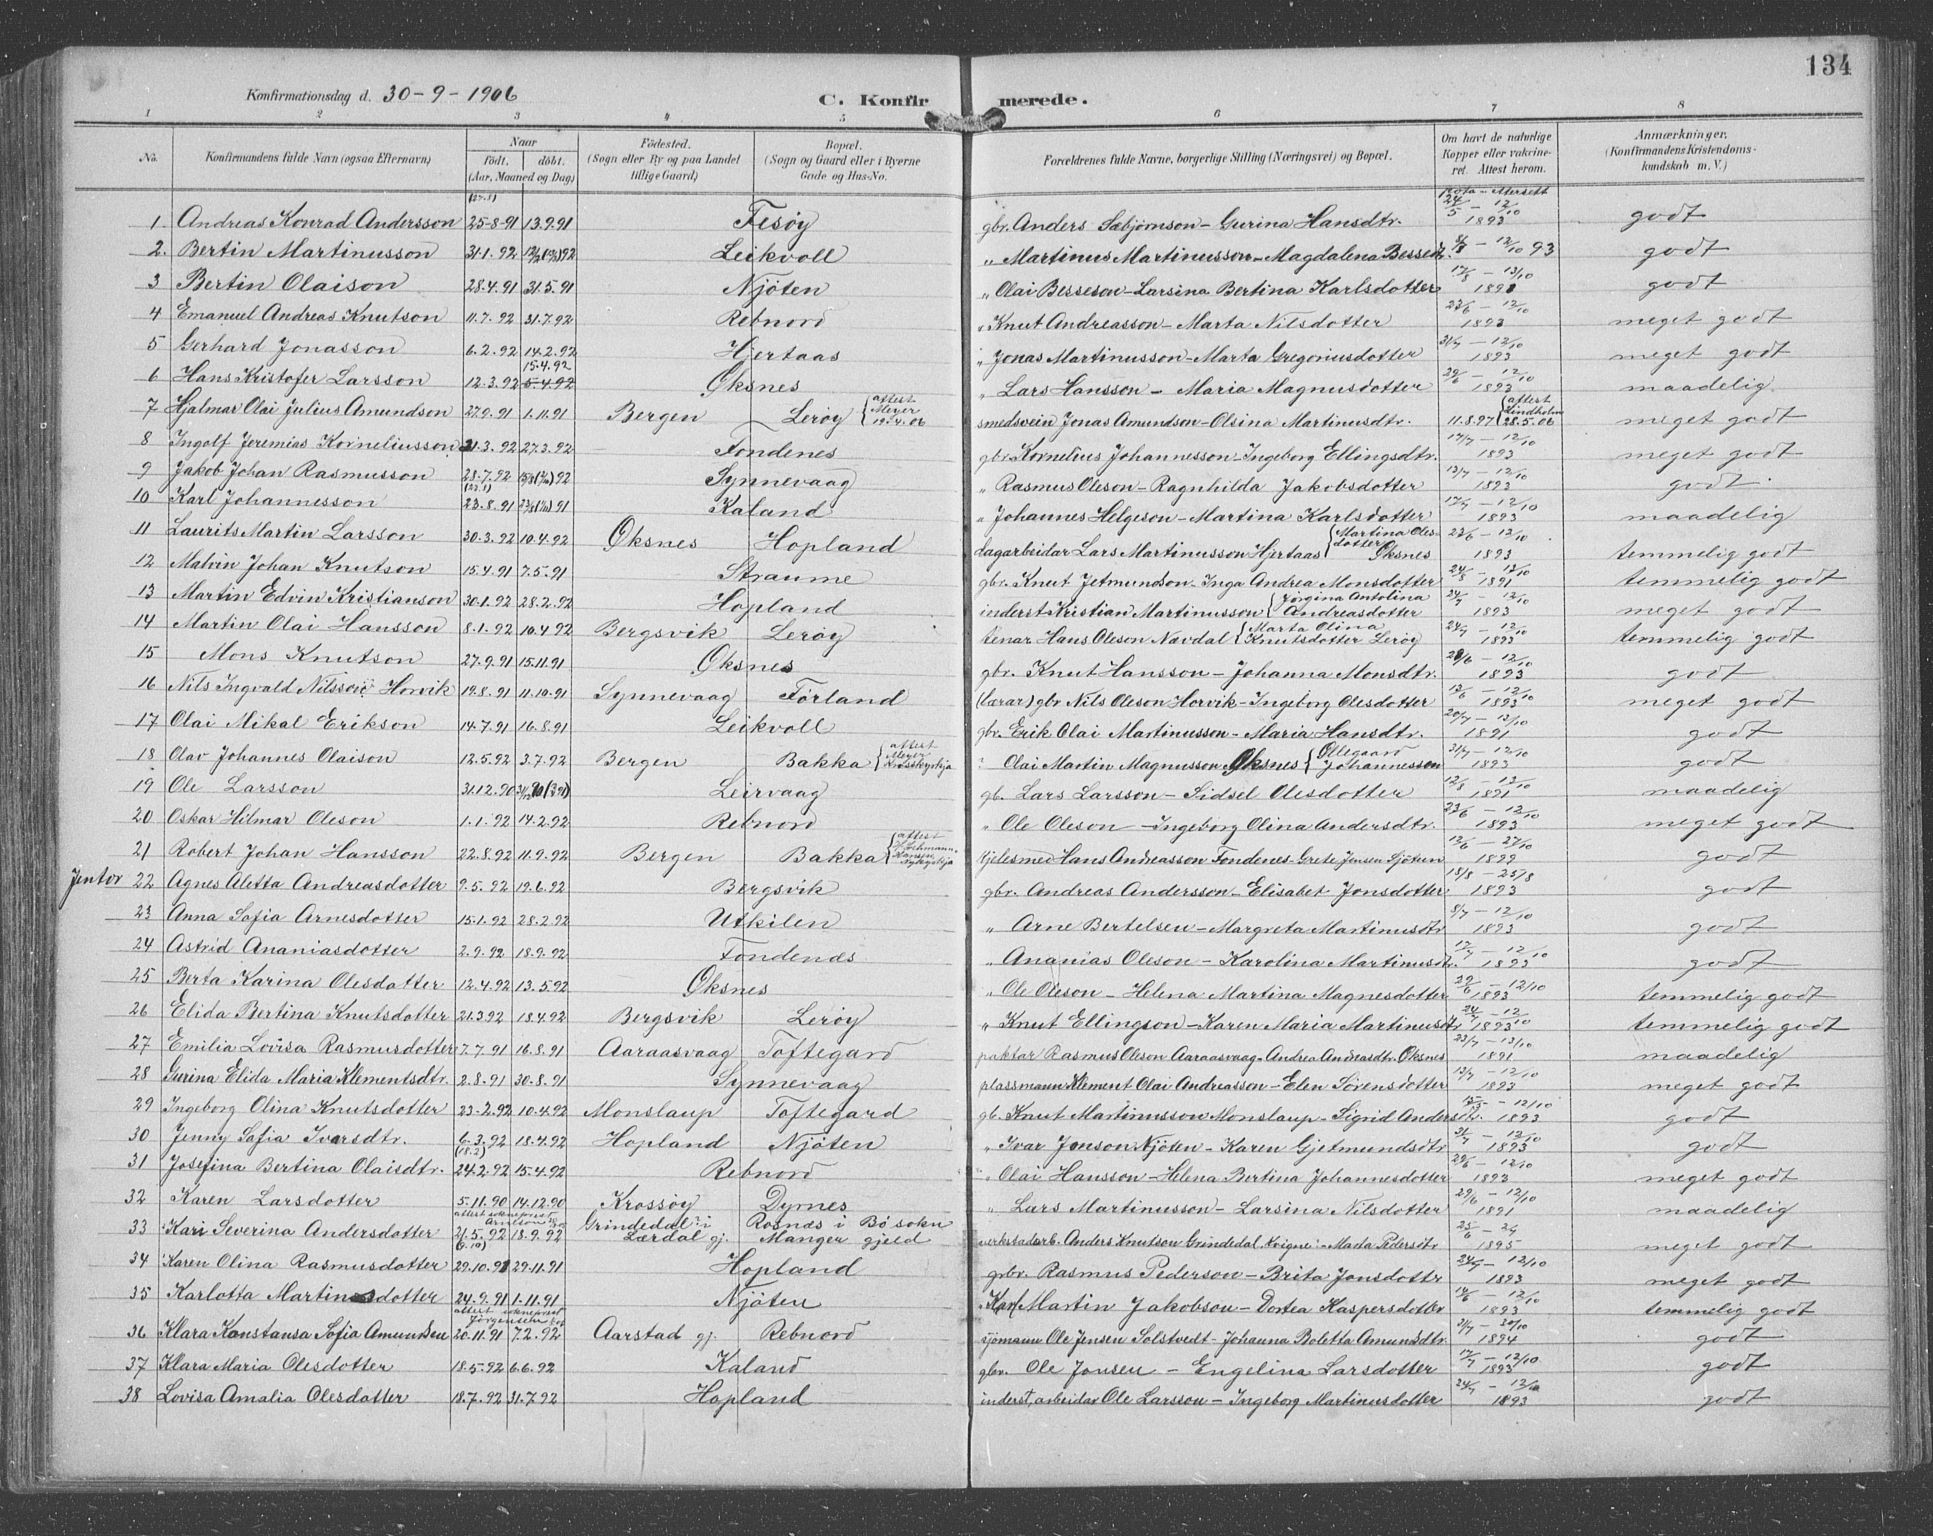 134
Konfirmationsdag d. 30-9-1906
C. Konfirmerede.
1 2 3 4 5 6 7 8
No. Konfirmandens fulde Navn (ogsaa Efternavn) Naar født. døbt. (Aar, Maaned og Dag) Fødested. (Sogn eller By og paa Landet tillige Gaard) Bopæl. (Sogn og Gaard eller i Byerne Gade og Hus-No. Forældrenes fulde Navne, borgerlige Stilling (Næringsvei) og Bopæl. Om havt de naturlige Kopper eller vakcineret. Attest herom. Anmærkninger. (Konfirmandens Kristendomskundskab m. V.)
1. Andreas Konrad Andersson 25-8-91 13.9.91 Fesøy gbr. Anders Sæbjørnson - Gurina Hansdtr. 24/5 - 12/10 1893 godt
2. Bertin Martinusson 31.1.92 Leikvoll " Martinus Martinusson - Magdalena Bessedtr. 8/8 - 12/10 93 godt
3 Bertin Olaison 28.4.91 31.5.91 Njøten " Olai Besseson - Larsina Bertina Karlsdotter godt
4 Emanuel Andreas Knutson 11.7.92 31.7.92 Rebnord " Knut Andreasson - Marta Nilsdotter 23/6 - 12/10 1893 meget godt
5 Gerhard Jonasson 6.2.92 14.2.92 Hjertaas " Jonas Martinusson - Marta Gregoriusdotter 31/7 - 12/10 1893 meget godt
6 Hans Kristofer Larsson 12.3.92 15.4.92 5.4.92 Øksnes " Lars Hansson - Maria Magnusdotter 29/6 - 12/10 1893 maadelig
7 Hjalmar Olai Julius Amundson 27.9.91 1.11.91 Bergen Lerøy { attest Meyer 19.4.06 smedsvein Jonas Amundson - Olsina Martinusdtr. 11.8.97 { attest Lindholm 28.5.06 meget godt
8 Ingolf Jeremias Korneliusson 21.3.92 27.3.92 Fondenes gbr. Kornelius Johannesson - Ingeborg Ellingsdtr. 17/7 - 12/10 1893 meget godt
9 Jakob Johan Rasmusson 28.7.92 Synnevaag " Rasmus Oleson - Ragnhilda Jakobsdotter 13/7 - 12/10 1893 godt
10 Karl Johannesson 23.8.91 Kaland " Johannes Helgeson - Martina Karlsdotter 17/7 - 12/10 1893 maadelig
11 Laurits Martin Larsson 30.3.92 10.4.92 Øksnes Hopland dagarbeidar Lars Martinusson Hjertaas { Martina Olesdotter Øksnes 23/6 - 12/10 1893 temmelig godt
12 Malvin Johan Knutson 15.4.91 7.5.91 Straume gbr. Knut Jetmundson - Inga Andrea Monsdotter 24/8 - 13/10 1891 temmelig godt
13 Martin Edvin Kristianson 30.1.92 28.2.92 Hopland inderst Kristian Martinusson { Jørgina Antolina Andreasdotter 24/7 - 12/10 1893 meget godt
14 Martin Olai Hansson 8.1.92 10.4.92 Bergsvik Lerøy tenar Hans Oleson Nævdal { Marta Olina Knutsdotter Lerøy 24/7 - 12/10 1893 temmelig godt
15 Mons Knutson 27.9.91 15.11.91 Øksnes gbr. Knut Hansson - Johanna Monsdtr. 1893 godt
16 Nils Ingvald Nilsson Horvik 19.8.91 11.10.91 Synnevaag Førland (lærar) gbr Nils Oleson Horvik - Ingeborg Olesdotter 13/6 - 12/10 1893 meget godt
17 Olai Mikal Erikson 14.7.91 16.8.91 Leikvoll gbr. Erik Olai Martinusson - Maria Hansdtr. 20/7 - 13/10 1891 godt
18 Olav Johannes Olaison 12.5.92 3.7.92 Bergen Bakka { attest Meyer Korskyrkja Olai Martin Magnusson Øksnes { Øllegaard Johannesson 31/7 - 12/10 1893 godt
19 Ole Larsson 31.12.90 Leirvaag gb. Lars Larsson - Sidsel Olesdotter 12/8 - 13/10 1891 maadelig
20 Oskar Hilmar Oleson 1.1.92 14.2.92 Rebnord " Ole Oleson - Ingeborg Olina Andersdtr. 23/6 - 12/10 1893 meget godt
21 Robert Johan Hansson 22.8.92 11.9.92 Bergen Bakka { attest Hansen Nykyrkja kjelesmed Hans Andreasson Fondenes - Grete Jensen Sjøtun 12/6 - 27/10 1899 godt
Jentor 22 Agnes Aletta Andreasdotter 9.5.92 19.6.92 Bergsvik gbr. Andreas Andersson - Elisabet Jonsdotter 18/8 - 25/8 1893 godt
23 Anna Sofia Arnesdotter 15.1.92 28.2.92 Utkilen " Arne Bertelsen - Margreta Martinusdtr 8/7 - 12/10 1893 godt
24 Astrid Ananiasdotter 2.9.92 18.9.92 Fondenes " Ananias Oleson - Karolina Martinusdtr. 12/7 - 12/10 1893 godt
25 Berta Karina Olesdotter 12.4.92 13.5.92 Øksnes " Ole Oleson - Helena Martina Magnesdotter 29/6 - 12/10 1893 temmelig godt
26 Elida Bertina Knutsdotter 21.3.92 18.4.92 Bergsvik Lerøy " Knut Ellingson - Karen Maria Martinusdtr 24/7 - 12/10 1893 temmelig godt
27 Emilia Lovisa Rasmusdotter 7.7.91 16.8.91 Aaraasvaag Toftegard paktar Rasmus Oleson Aaraasvaag - Andrea Andreasdtr. Øksnes 23/7 - 13/10 1891 maadelig
28 Gurina Elida Maria Klementsdtr. 2.8.91 30.8.91 Synnevaag plassmann Klement Olai Andreasson - Elen Sørensdotter 13/7 - 12/10 1893 meget godt
29 Ingeborg Olina Knutsdotter 23.2.92 10.4.92 Monslaup Toftegard gb. Knut Martinusson Monslaup - Sigrid Andersdtr. 12/10 1893 godt
30 Jenny Sofia Ivarsdtr. 6.3.92 18.4.92 Hopland Njøten " Ivar Jonson Njøten - Karen Gjetmundsdtr 31/7 - 12/10 1893 godt
31 Josefina Bertina Olaisdtr. (18.2) 24.2.92 15.4.92 Rebnord " Olai Hansson - Helena Bertina Johannesdotter 29/6 - 12/10 1893 meget godt
32 Karen Larsdotter 5.11.90 14.12.90 Krossøy Dyrnes " Lars Martinusson - Larsina Nilsdotter 29/6 - 13/10 1891 maadelig
33 Kari Severina Andersdotter attest sokneprest 21.5.92 18.9.92 Grindedal i Lærdal gj. Rosnæs i Bø sokn Manger gjeld verkstadarb. Anders Knutson Grindedal - Marta Pedersdtr 1895 meget godt
34 Karen Olina Rasmusdotter (9.10) 29.10.91 29.11.91 Hopland gbr. Rasmus Pederson - Brita Jonsdotter 24/7 - 12/10 1893 meget godt
35 Karlotta Martinsdotter 24.9.91 1.11.91 Njøten Martin Jakobson - Dortea Kaspersdotter 14/6 - 12/10 1893 temmelig godt
36 Klara Konstansa Sofia Amundsen attest sokneprest 20.11.91 7.2.92 Aarstad gj. Rebnord sjømann Ole Jensen Solstvedt - Johanna Boletta Amundsdtr. 31/7 - 30/10 1894 godt
37 Klara Maria Olesdotter 18.5.92 6.6.92 Kaland gbr. Ole Jonsen - Engelina Larsdotter 17/7 - 12/10 1893 godt
38 Lovisa Amalia Olesdotter 18.7.92 31.7.92 Hopland inderst, arbeidar Ole Larsson - Ingeborg Martinusdotter 24/7 - 12/10 1893 godt